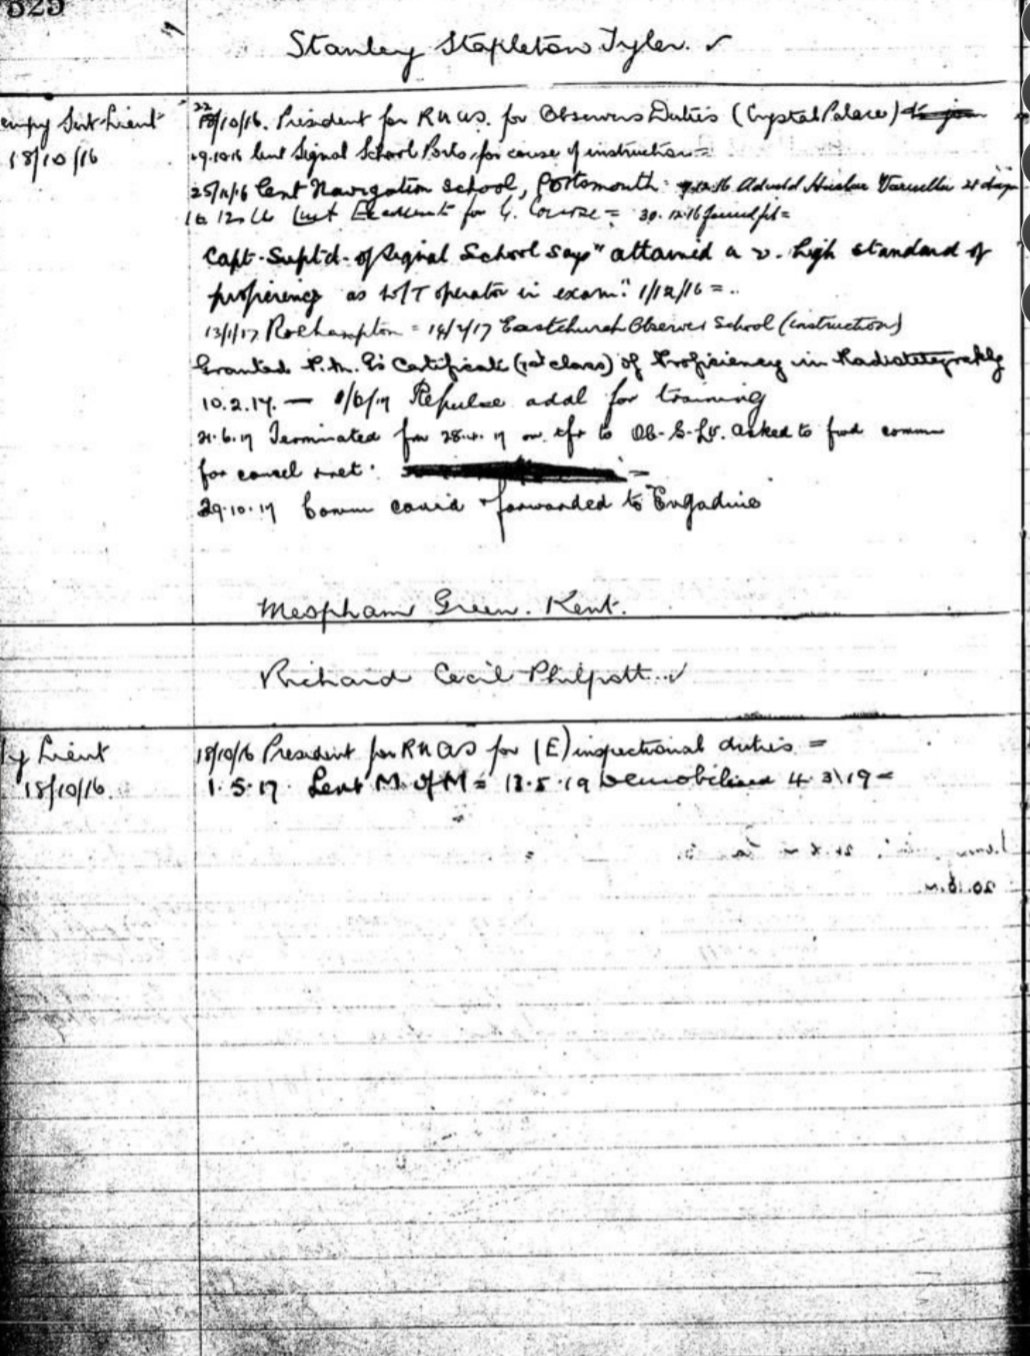 329
Stanley Stapleton Tyler. ✓
Sub Lieut
18/10/16
22/10/16. President for RNAS. for Observers Duties (Crystal Palace)
19.10.16 lent Signal School Ports. for course of instruction =
25/11/16 lent Navigation School, Portsmouth. Haslar 21 days
Lent for G. Course = 30.12.16 found fit =
Capt. Suptd. of Signal School says "attained a v. high standard of
proficiency as W/T operator in exam." 1/12/16 =
13/1/17 Roehampton = 14/2/17 Eastchurch Observer School (instruction)
Granted P.M.G's Certificate (1st class) of Proficiency in Radiotelegraphy
10.2.17. — Repulse addl for training
21.6.17 Terminated fm 28.4.17 on tfr to Ob. S. Lt. asked to fwd comm
for cancel
29.10.17 Comm canc'd & forwarded to "Engadine"
Meopham Green. Kent.
Richard Cecil Philpott. ✓
Ty Lieut
18/10/16.
18/10/16 President for RNAS for (E) inspectional duties =
1.5.17. Lent M. of M = 13.5.19 Demobilised 4.3.19 =